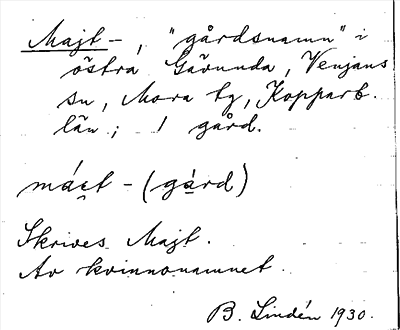 Majt-, "gårdsnamn" i
östra Gävunda, Venjans
sn, Mora tg, Kopparb.
län; 1 gård.
máet - (gård)
Skrives Majt.
Av kvinnonamnet.
B. Lindén 1930.